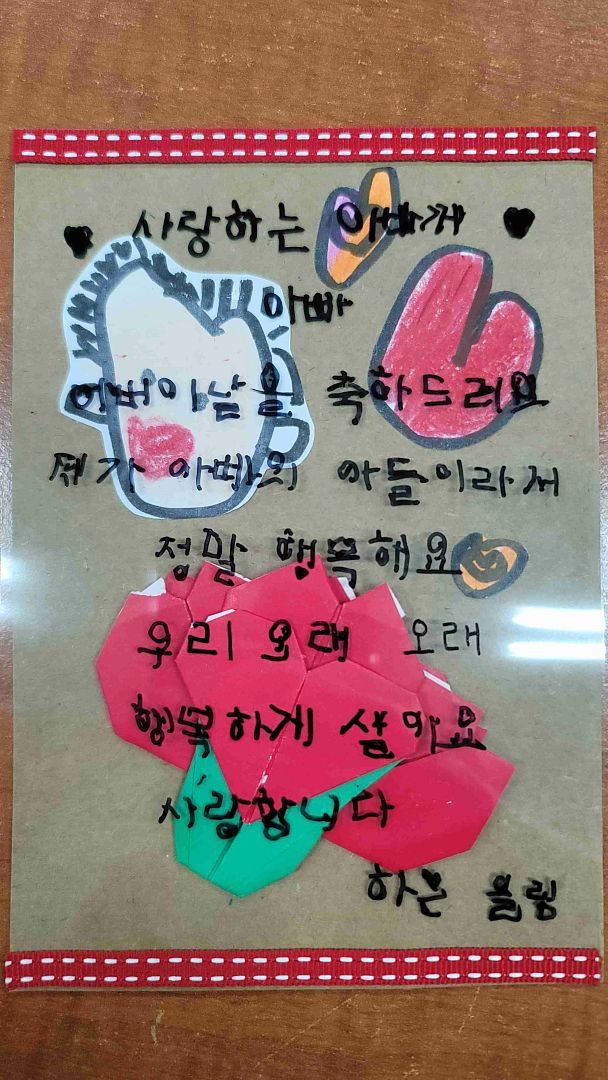 사랑하는 아빠께
아빠
어버이날을 축하드려요
제가 아빠의 아들이라서
정말 행복해요
우리 오래 오래
행복하게 살아요
사랑합니다
하온 올림